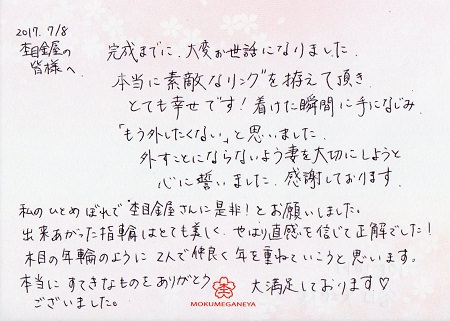 2017. 7/8
杢目金屋の
皆様へ
完成までに、大変お世話になりました。
本当に素敵なリングを拵えて頂き
とても幸せです！着けた瞬間に手になじみ
「もう外したくない」と思いました。
外すことにならないよう妻を大切にしようと
心に誓いました。感謝しております。
私のひとめぼれで杢目金屋さんに是非！とお願いしました。
出来あがった指輪はとても美しく、やはり直感を信じて正解でした！
木目の年輪のように2人で仲良く年を重ねていこうと思います。
本当にすてきなものをありがとう
ございました。
大満足しております♡
MOKUMEGANEYA